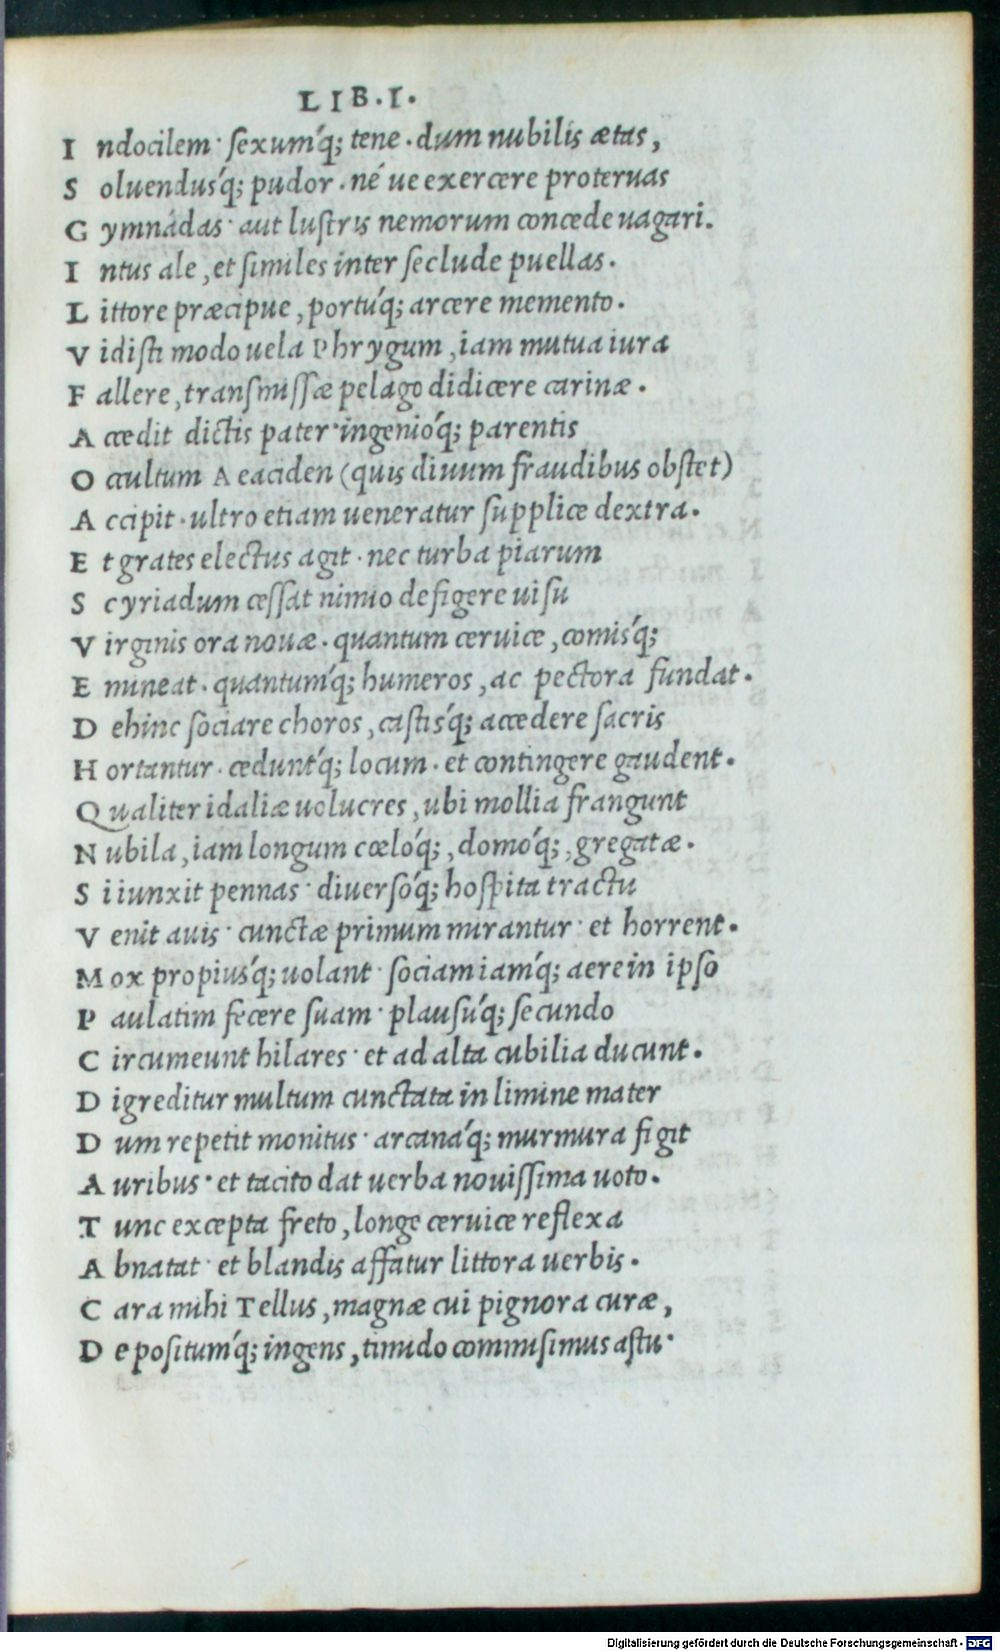 LIB.I.
I ndocilem· sexum´q; tene. dum nubilis ætas,
S oluendus´q; pudor. né ue exercere proteruas
G ymnádas· aut lustris nemorum concede uagari.
I ntus ale, et similes inter seclude puellas.
L ittore præcipue, portú´q; arcere memento.
V idisti modo uela Phrygum, iam mutua iura
F allere, transmissæ pelago didicere carinæ.
A ccedit dictis pater· ingenió´q; parentis
O ccultum Aeaciden (quis diuum fraudibus obstet)
A ccipit. ultro etiam ueneratur supplice dextra.
E t grates electus agit. nec turba piarum
S cyriadum cessat nimio defigere uisu
V irginis ora nouæ. quantum ceruice, comis´q;
E mineat. quantum´q; humeros, ac pectora fundat.
D ehinc sociare choros, castis´q; accedere sacris
H ortantur. cedunt´q; locum. et contingere gaudent.
Q ualiter idaliæ uolucres, ubi mollia frangunt
N ubila, iam longum cœló´q;, domó´q;, gregatæ.
S i iunxit pennas· diuersó´q; hospita tractu
V enit auis· cunctæ primum mirantur· et horrent.
M ox propius´q; uolant· sociam iam´q; aere in ipso
P aulatim fecere suam· plausú´q; secundo
C ircumeunt hilares· et ad alta cubilia ducunt.
D igreditur multum cunctata in limine mater
D um repetit monitus· arcaná´q; murmura figit
A uribus· et tacito dat uerba nouissima uoto.
T unc excepta freto, longe ceruice reflexa
A bnatat· et blandis affatur littora uerbis.
C ara mihi Tellus, magnæ cui pignora curæ,
D epositum´q; ingens, timido commisimus astu·
Digitalisierung gefördert durch die Deutsche Forschungsgemeinschaft - DFG